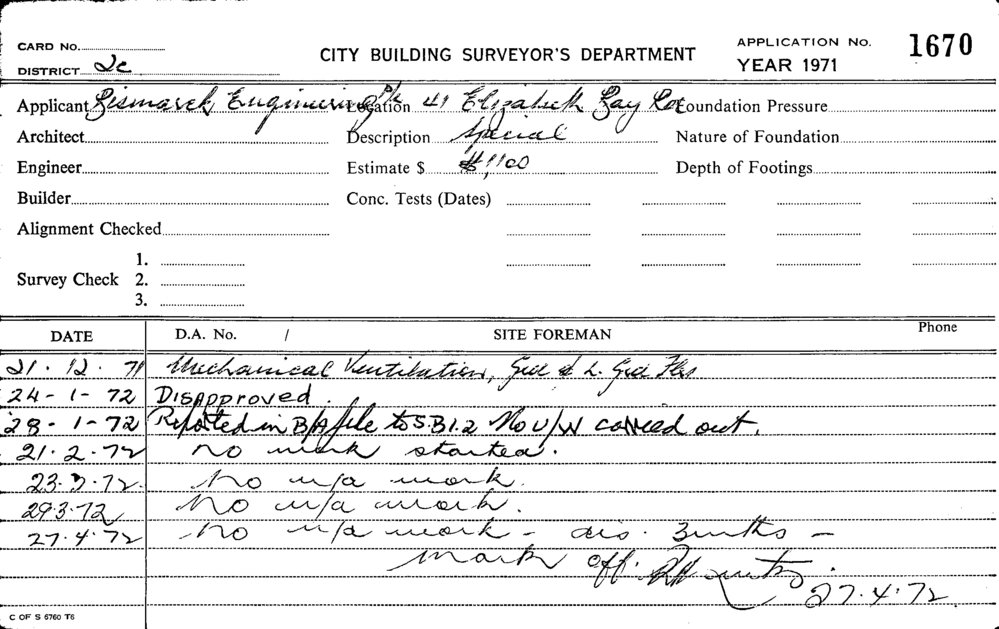 CARD No.
DISTRICT 2c
CITY BUILDING SURVEYOR'S DEPARTMENT
APPLICATION No. 1670
YEAR 1971
Applicant Bismarck Engineering P/L Location 41 Elizabeth Bay Rd Foundation Pressure
Architect Description Special Nature of Foundation
Engineer Estimate $ $1,100 Depth of Footings
Builder Conc. Tests (Dates)
Alignment Checked
Survey Check 1.
2.
3.
DATE D.A. No. / SITE FOREMAN Phone
21. 12. 71 Mechanical Ventilation, Grd & L. Grd Flrs
24-1-72 Disapproved.
28-1-72 Reported in B/A file to S.B.I.2 No U/W carried out.
21.2.72 No work started.
23.3.72 No u/a work.
29.3.72 No u/a work.
27.4.72 No u/a work - dis. 3 mths -
mark off.
27.4.72
C OF S 6760 T6